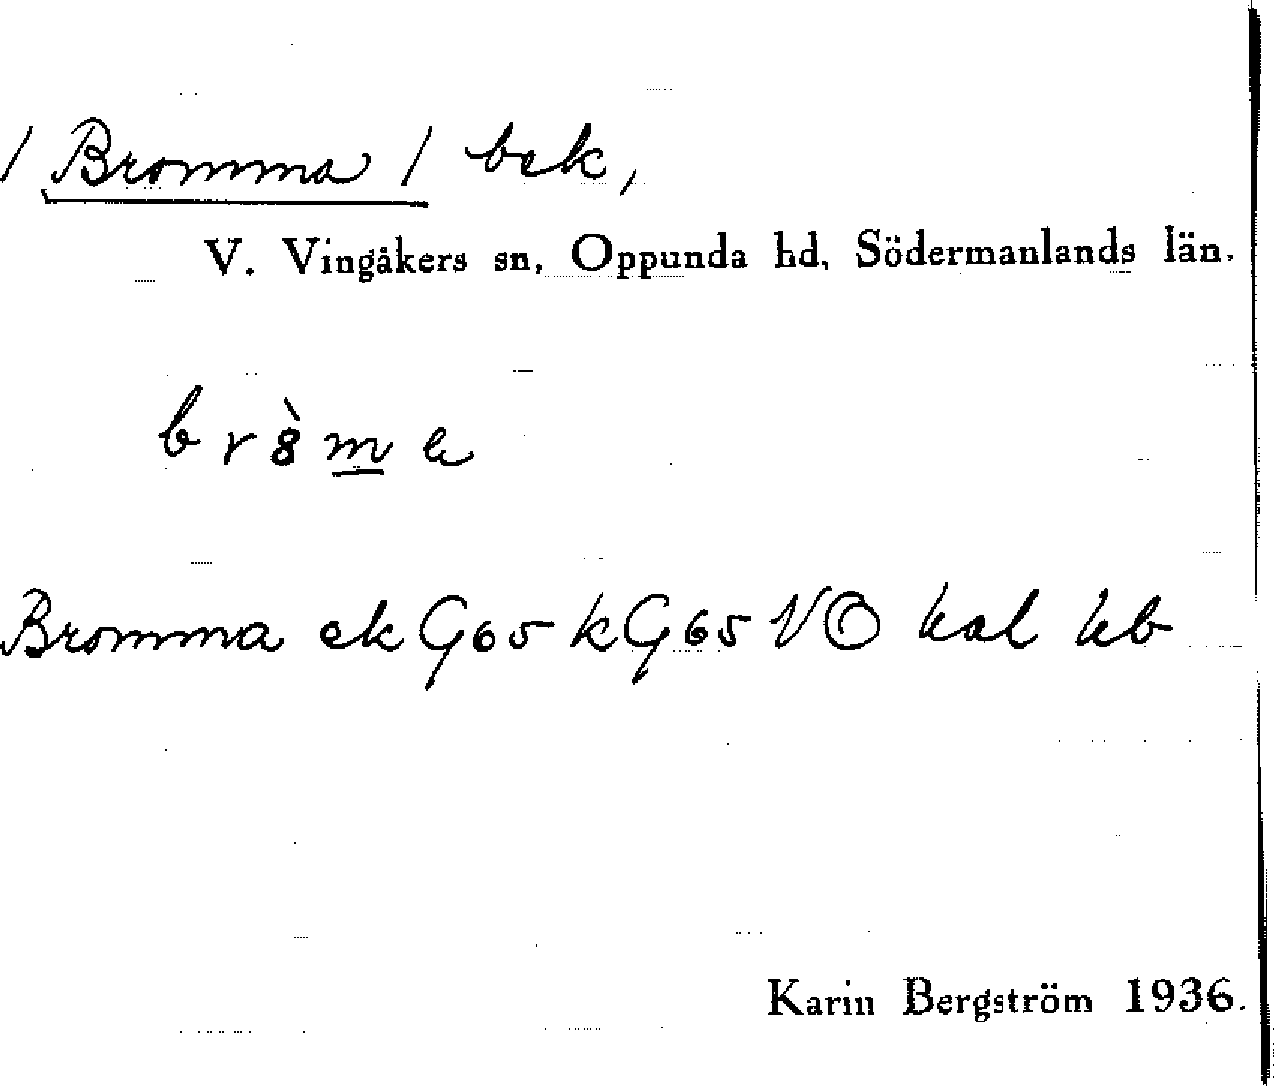 / Bromma / bek,
V. Vingåkers sn, Oppunda hd, Södermanlands län.
Bromma ek G65 kG65 VO hal hb
Karin Bergström 1936.